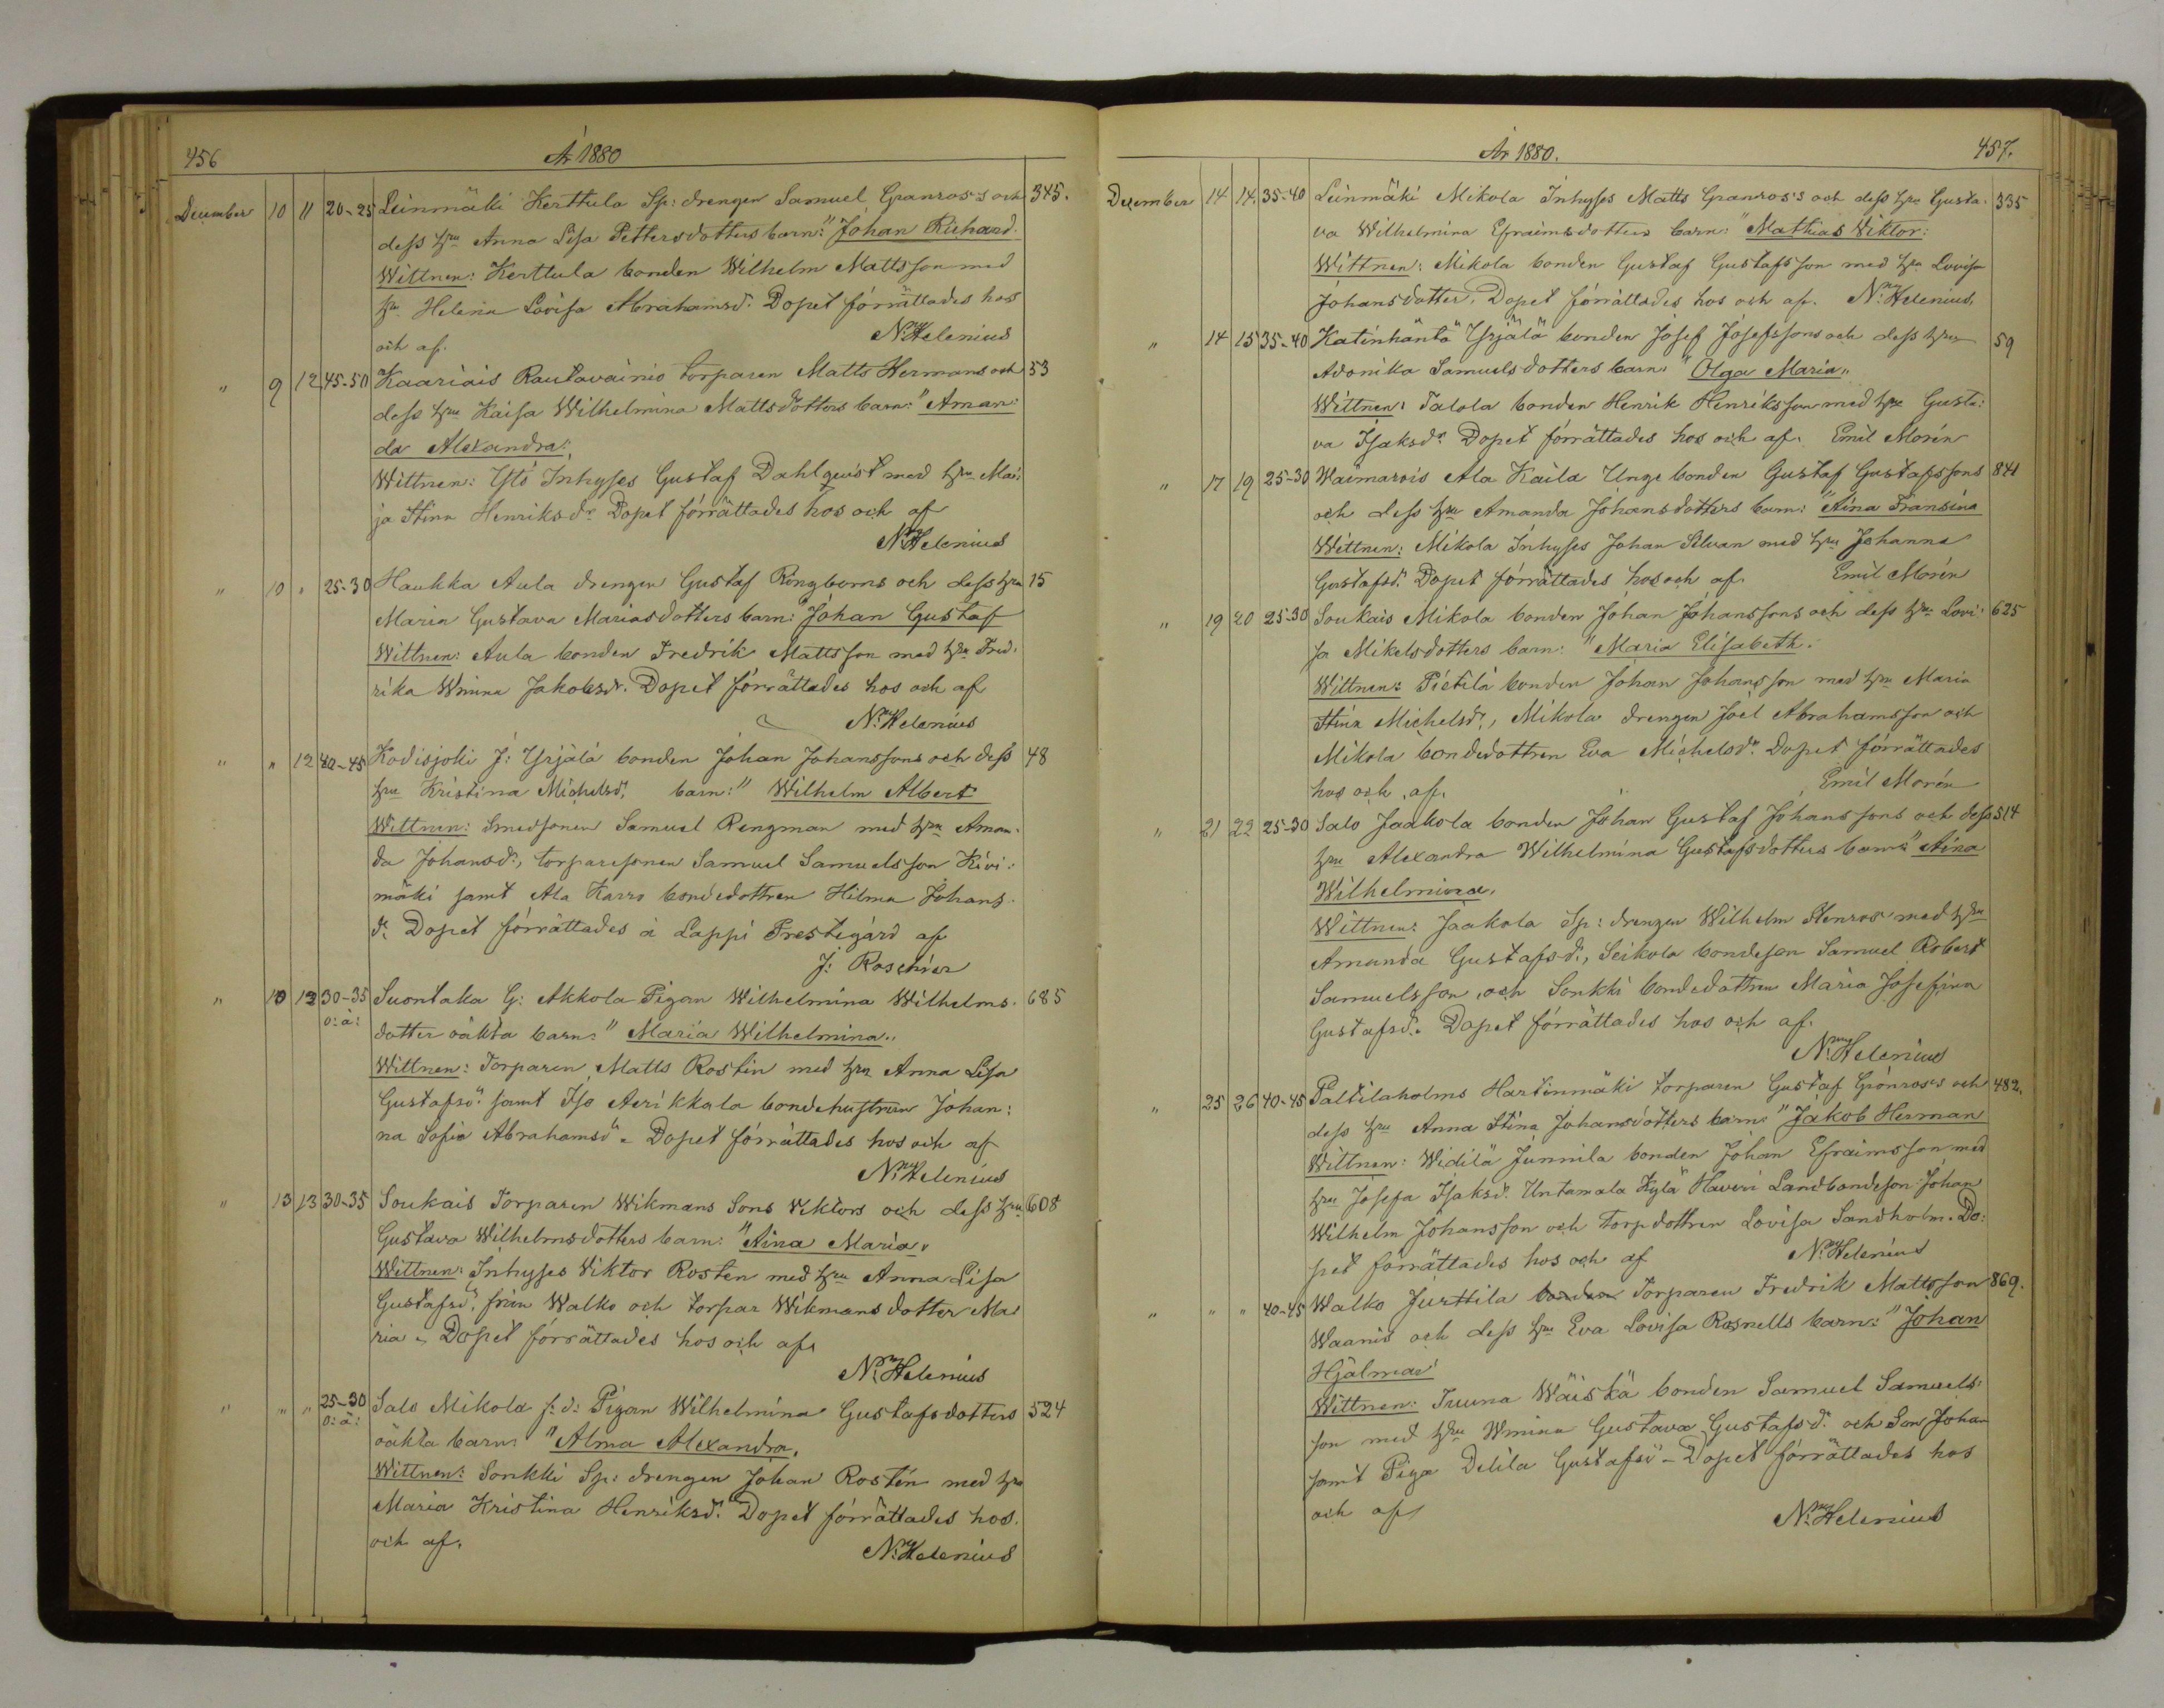 456
År 1880
December 10 11 20-25 Leinmäki Kerttula Sp: drengen Samuel Granros's och 345.
dess hru Anna Lisa Pettersdotters barn: "Johan Richard.
Wittnen: Kerttula bonden Wilhelm Mattsson med
hru Helena Lovisa Abrahamsd. Dopet förrättades hos
och af. N. Helenius
" 9 12 45-50 Kaariais Rautavainio torparen Matts Hermans och 53
dess hru Kaisa Wilhelmina Mattsdotters barn: "Aman:
da Alexandra:
Wittnen: Ylö Inhyses Gustaf Dahlqvist med hru Mai:
ja Stina Henriksdr Dopet förrättades hos och af
N. Helenius
" 10 " 25-30 Haukka Aula drengen Gustaf Ringboms och dess hru 15
Maria Gustava Mariasdotters barn: "Johan Gustaf
Wittnen: Aula bonden Fredrik Mattsson med hru Fred:
rika Wmina Jakobsdr. Dopet förrättades hos och af
N. Helenius
" " 12 40-45 Kodisjoki J: Yrjälä bonden Johan Johanssons och dess 48
hru Kristina Michelsd. barn: " Wilhelm Albert
Wittnen: Smedsonen Samuel Rengman med hru Aman:
da Johansd:, torparesonen Samuel Samuelsson Kivi:
mäki samt Ala Karro bondedottren Hilma Johans
dr. Dopet förrättades å Lappi Prestegård af
J: Roschier
" 10 13 30-35 Suontaka G: Akkola Pigan Wilhelmina Wilhelms: 685
o: ä: dotter oäkta barn: " Maria Wilhelmina "
Wittnen: Torparen Matts Rostin med hru Anna Lisa
Gustafsd. samt Iso Aerikkala bondehustrun Johan:
na Sofia Abrahamsd. Dopet förrättades hos och af
N. Helenius
" 13 13 30-35 Soukais Torparen Wikmans Sons Viktors och dess hru 608
Gustava Wilhelmsdotters barn: "Aina Maria"
Wittnen: Inhyses Viktor Rosten med hru Anna Lisa
Gustafsd. från Walko och torpar Wikmans dotter Ma:
ria. Dopet förrättades hos och af.
N. Helenius
" " " 25-30 Salo Mikola f: d: Pigan Wilhelmina Gustafsdotters 524
o: ä: oäkta barn: "Alma Alexandra.
Wittnen: Sonkki Sp: drengen Johan Rostén med hru
Maria Kristina Henriksd. Dopet förrättades hos.
och af. N. Helenius
År 1880. 457.
December 14 14. 35-40 Leinmäki Mikola Inhyses Matts Granros's och dess hru Gusta: 335
va Wilhelmina Efraimsdotters barn: "Mathias Viktor:
Wittnen: Mikola bonden Gustaf Gustafsson med hru Lovisa
Johansdotter. Dopet förrättades hos och af. N. Helenius,
" 14 15 35-40 Katinhäntä Yrjälä bonden Josef Josefssons och dess hru 59
Adonika Samuelsdotters barn: "Olga Maria"
Wittnen: Talola bonden Henrik Henriksson med hru Gusta:
va Isaksdr. Dopet förrättades hos och af. Emil Morén
" 17 19 25-30 Waimarois Ala Kaila Unge bonden Gustaf Gustafssons 841
och dess hru Amanda Johansdotters barn: "Aina Fransina
Wittnen: Mikola Inhyses Johan Silvan med hru Johanna
Gustafsd. Dopet förrättades hos och af. Emil Morén
" 19 20 25-30 Soukais Mikola bonden Johan Johanssons och dess hru Lovi: 625
sa Mikelsdotters barn: "Maria Elisabeth.
Wittnen: Pietilä bonden Johan Johansson med hru Maria
Stina Michelsdr., Mikola drengen Joel Abrahamsson och
Mikola bondedottren Eva Michelsdr. Dopet förrättades
hos och af. Emil Morén
" 21 22 25-30 Salo Jaakola bonden Johan Gustaf Johanssons och dess 514
hru Alexandra Wilhelmina Gustafsdotters barn: "Aina
Wilhelmina.
Wittnen: Jaakola Sp: drengen Wilhelm Stenros med hru
Amanda Gustafsd., Seikola bondeson Samuel Robert
Samuelsson, och Sonkki bondedottren Maria Josefina
Gustafsd. Dopet förrättades hos och af.
N. Helenius
" 25 26 40-45 Paltilaholms Hartinmäki torparen Gustaf Grönros's och 482.
dess hru Anna Stina Johansdotters barn: "Jakob Herman
Wittnen: Widilä Junnila bonden Johan Efraimsson med
hru Josefa Isaksd. Untamala Kylä Haveri Landbondeson Johan
Wilhelm Johansson och torpdottren Lovisa Sandholm. Do:
pet förrättades hos och af N. Helenius
" " " 40-45 Walko Jurttila bonden Torparen Fredrik Mattsson 869.
Waanis och dess hru Eva Lovisa Rosnells barn: "Johan
Hjalmar
Wittnen: Truuna Wäiskä bonden Samuel Samuels:
son med hru Wmina Gustava Gustafsd. och Son Johan
samt Piga Delila Gustafsd - Dopet förrättades hos
och af
N. Helenius